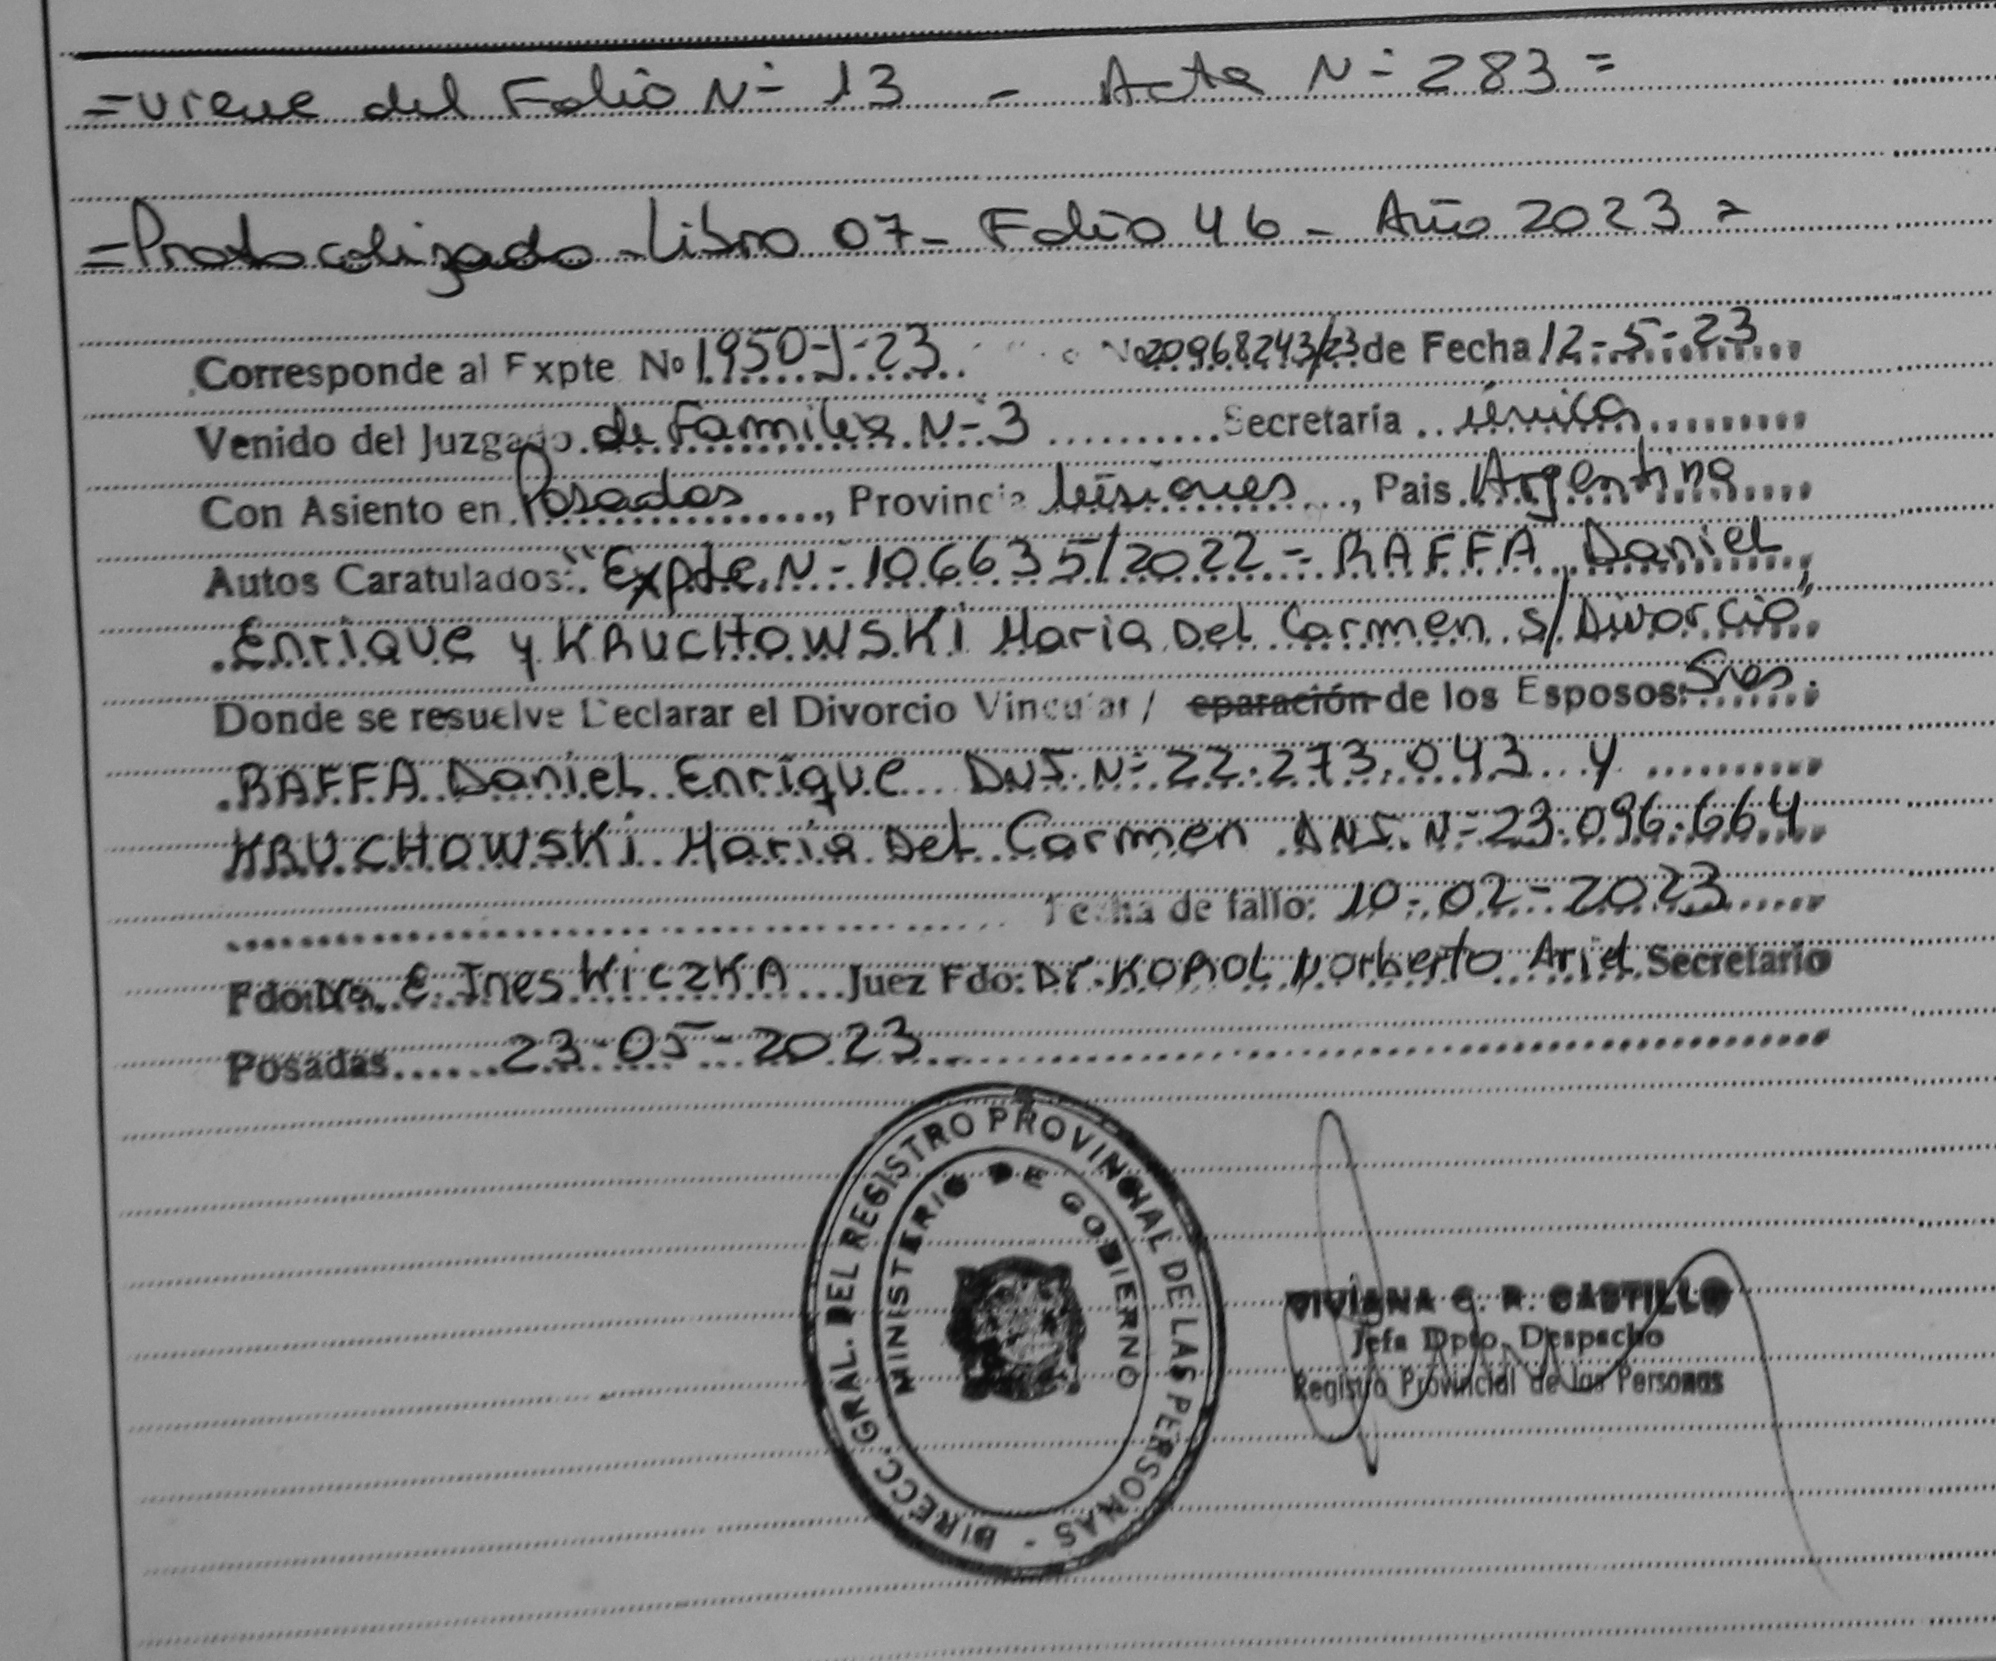 =Viene del Folio N- 13 - Acta N- 283=
=Protocolizado-Libro 07- Folio 46- Año 2023=
Corresponde al Expte Nº 1950-J-23 Nº 20968243/23 de Fecha 12-5-23
Venido del Juzgado de Familia N-3 Secretaría única
Con Asiento en Posadas, Provincia Misiones, Pais Argentina
Autos Caratulados: "Expte. N-106635/2022- RAFFA Daniel
Enrique y KRUCHOWSKi Maria Del Carmen s/Divorcio"
Donde se resuelve Declarar el Divorcio Vincular / eparación de los Esposos: Sres.
RAFFA Daniel Enrique DNI. N- 22.273.043 y
KRUCHOWSKi Maria Del Carmen DNI. N-23.096.664
Fecha de fallo: 10-02-2023
Fdo: Dra. E. Ines KiCZKA Juez Fdo: Dr. KOROL Norberto Ariel Secretario
Posadas 23-05-2023
DIRECC. GRAL. DEL REGISTRO PROVINCIAL DE LAS PERSONAS -
MINISTERIO DE GOBIERNO
VIVIANA C. R. CASTILLO
Jefa Dpto. Despacho
Registro Provincial de las Personas